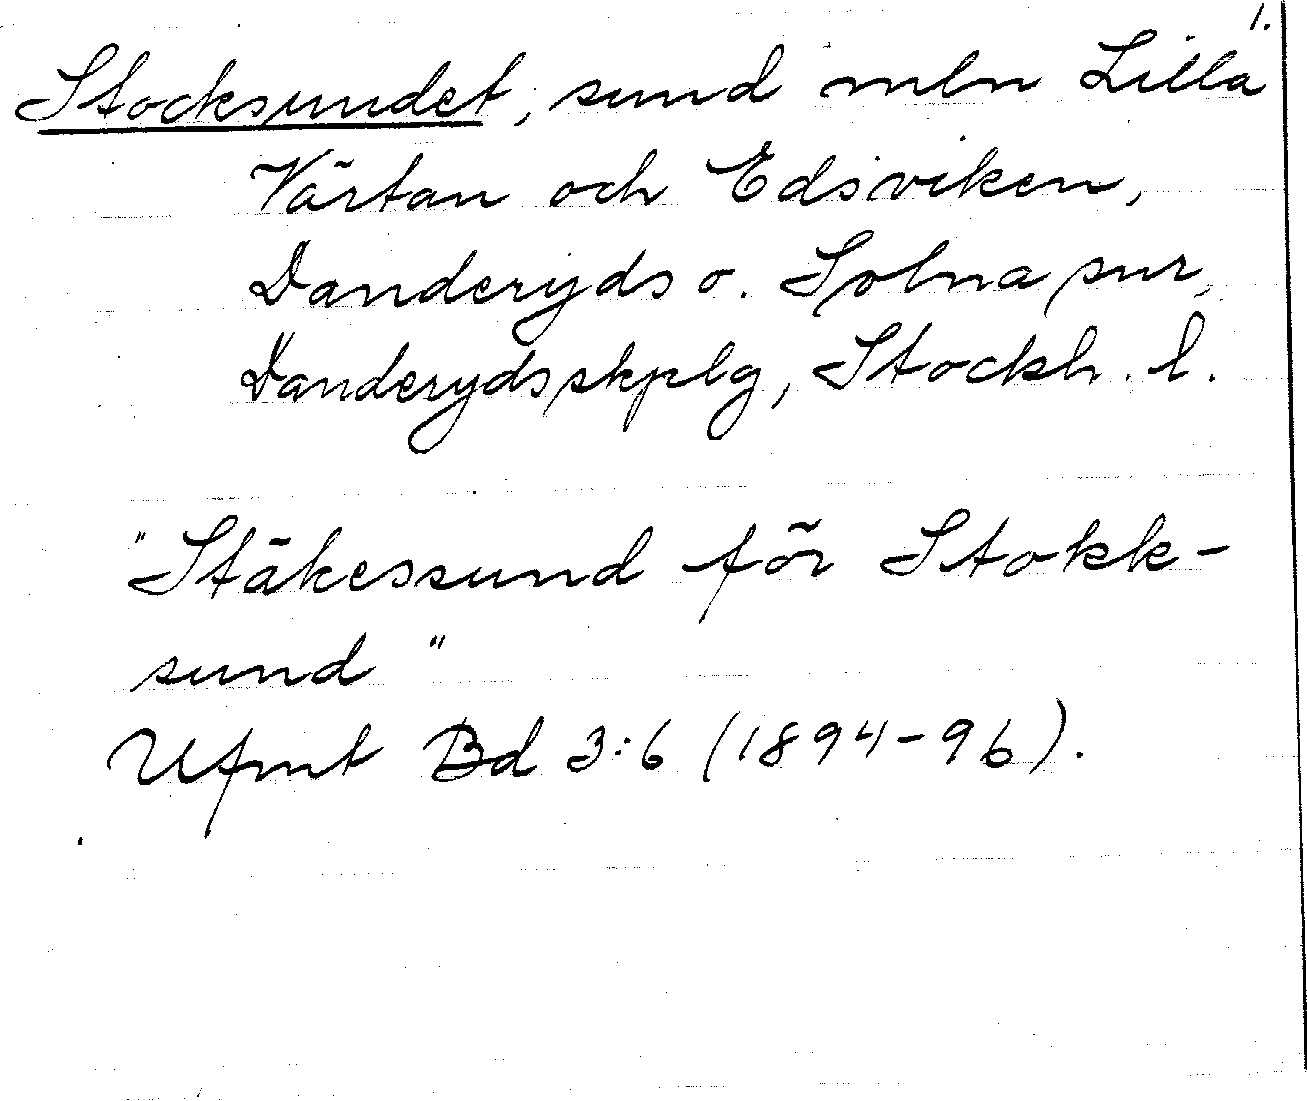 1.
Stocksundet, sund mln Lilla
Värtan och Edsviken,
Danderyds o. Solna snr,
Danderyds skplg, Stockh. l.
"Stäkessund för Stokk-
sund"
Ufmt Bd 3:6 (1894-96).